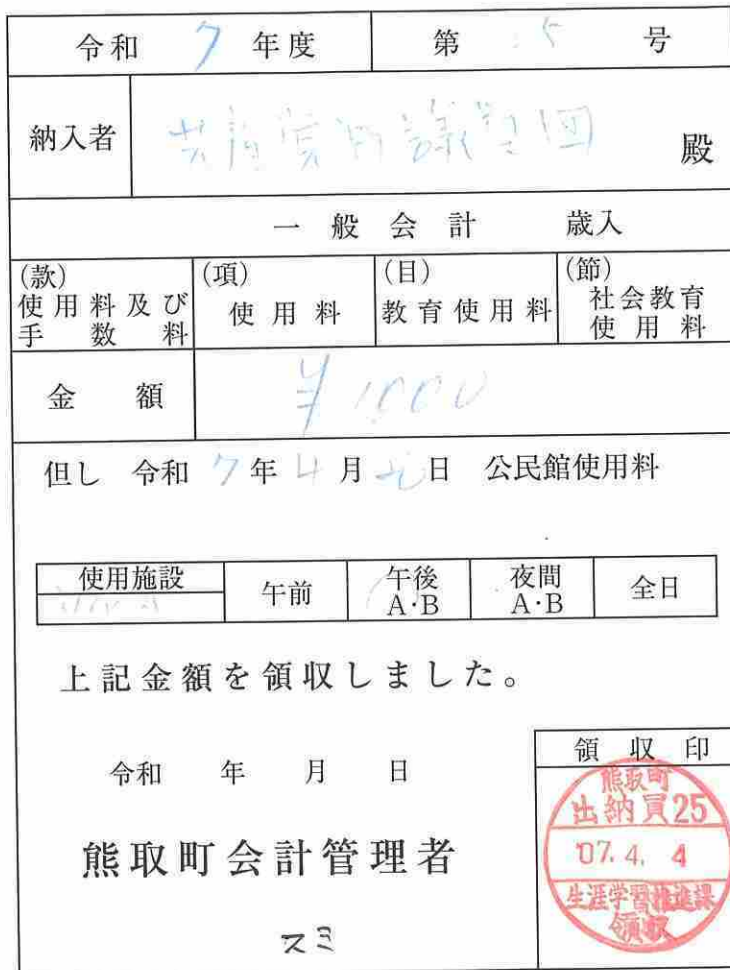 令和 7 年度 第 5 号
納入者 共産党町議員団 殿
一般会計 歳入
(款) (項) (目) (節)
使用料及び手数料 使用料 教育使用料 社会教育使用料
金額 ¥1000
但し 令和 7年 4月 日 公民館使用料
使用施設 午前 午後A・B 夜間A・B 全日
上記金額を領収しました。
令和 年 月 日
熊取町会計管理者
スミ
領収印
熊取町
出納員25
07.4.4
生涯学習推進課
領収